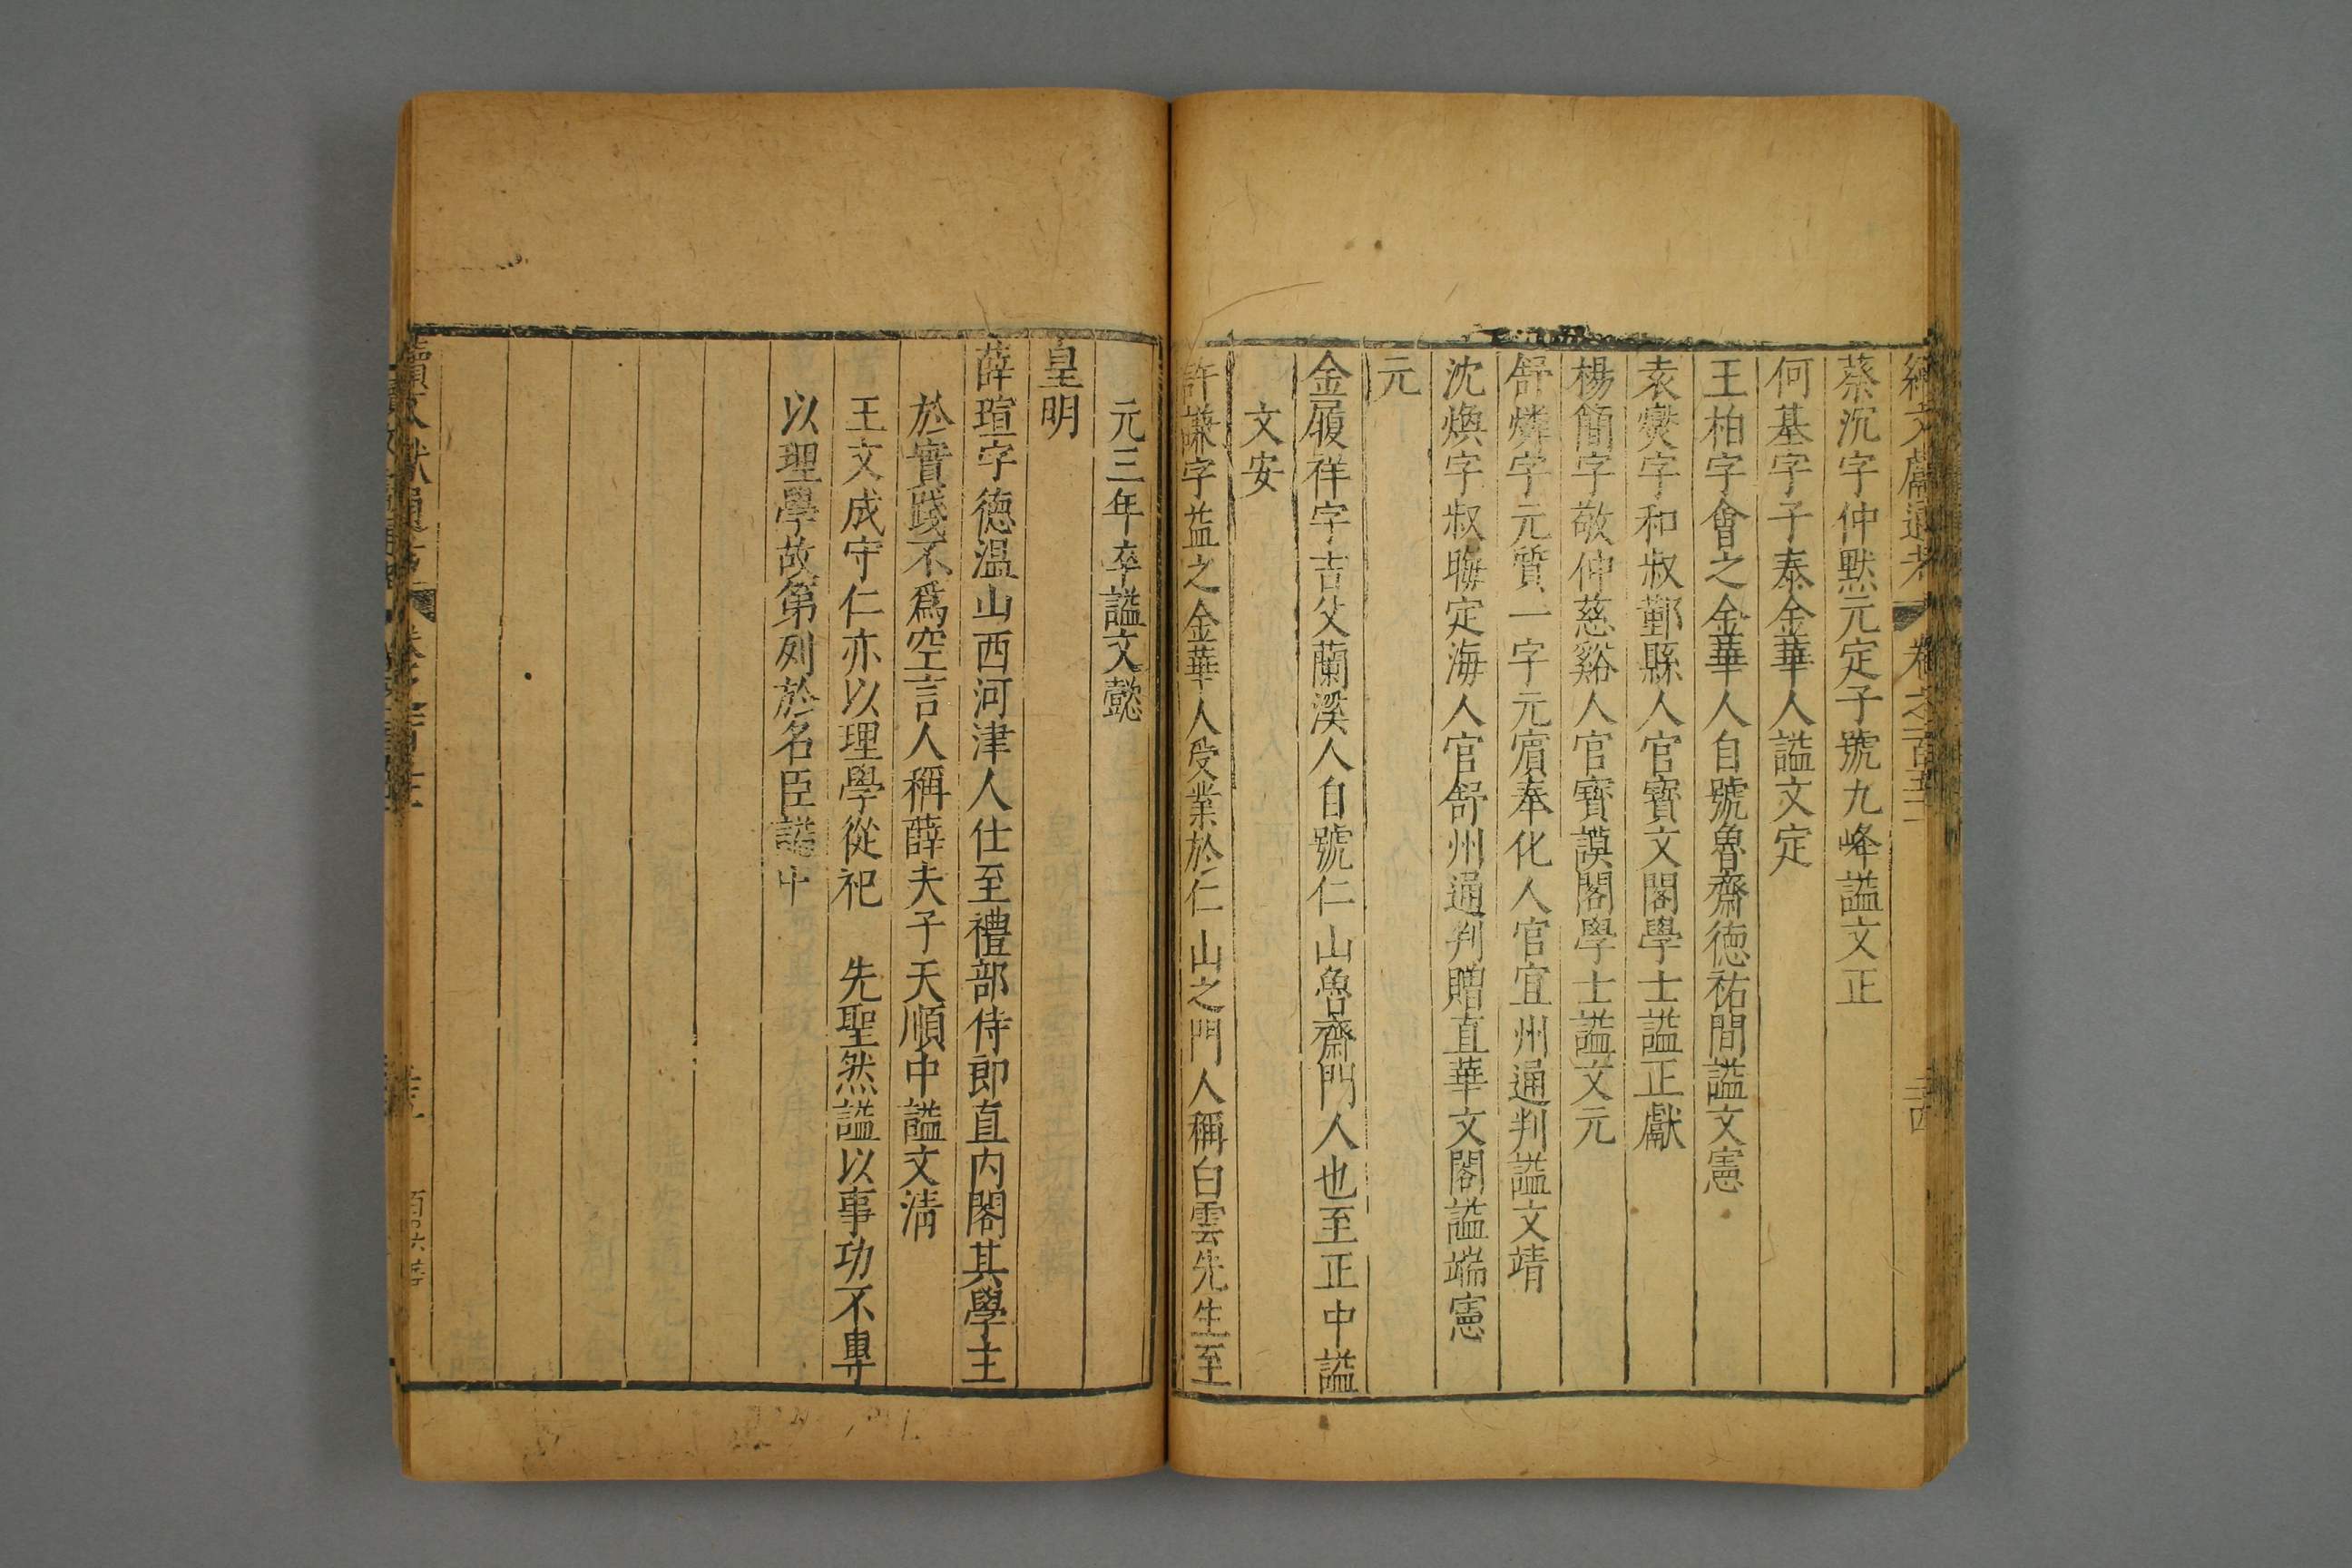 續文獻通考 卷之一百五十二 三四
蔡沉字仲默元定子號九峰謚文正
何基字子泰金華人謚文定
王柏字會之金華人自號魯齋德祐間謚文憲
袁燮字和叔鄞縣人官寶文閣學士謚正獻
楊簡字敬仲慈谿人官寶謨閣學士謚文元
舒燐字元質一字元賔奉化人官宜州通判謚文靖
沈煥字叔晦定海人官舒州通判贈直華文閣謚端憲
元
金履祥字吉父蘭溪人自號仁山魯齋門人也至正中謚
文安
許謙字益之金華人受業於仁山之門人稱白雲先生至
元三年卒謚文懿
皇明
薛瑄字德温山西河津人仕至禮部侍郎直内閣其學主
於實踐不爲空言人稱薛夫子天順中謚文清
王文成守仁亦以理學從祀 先聖然謚以事功不專
以理學故第列於名臣謚中
續文獻通考